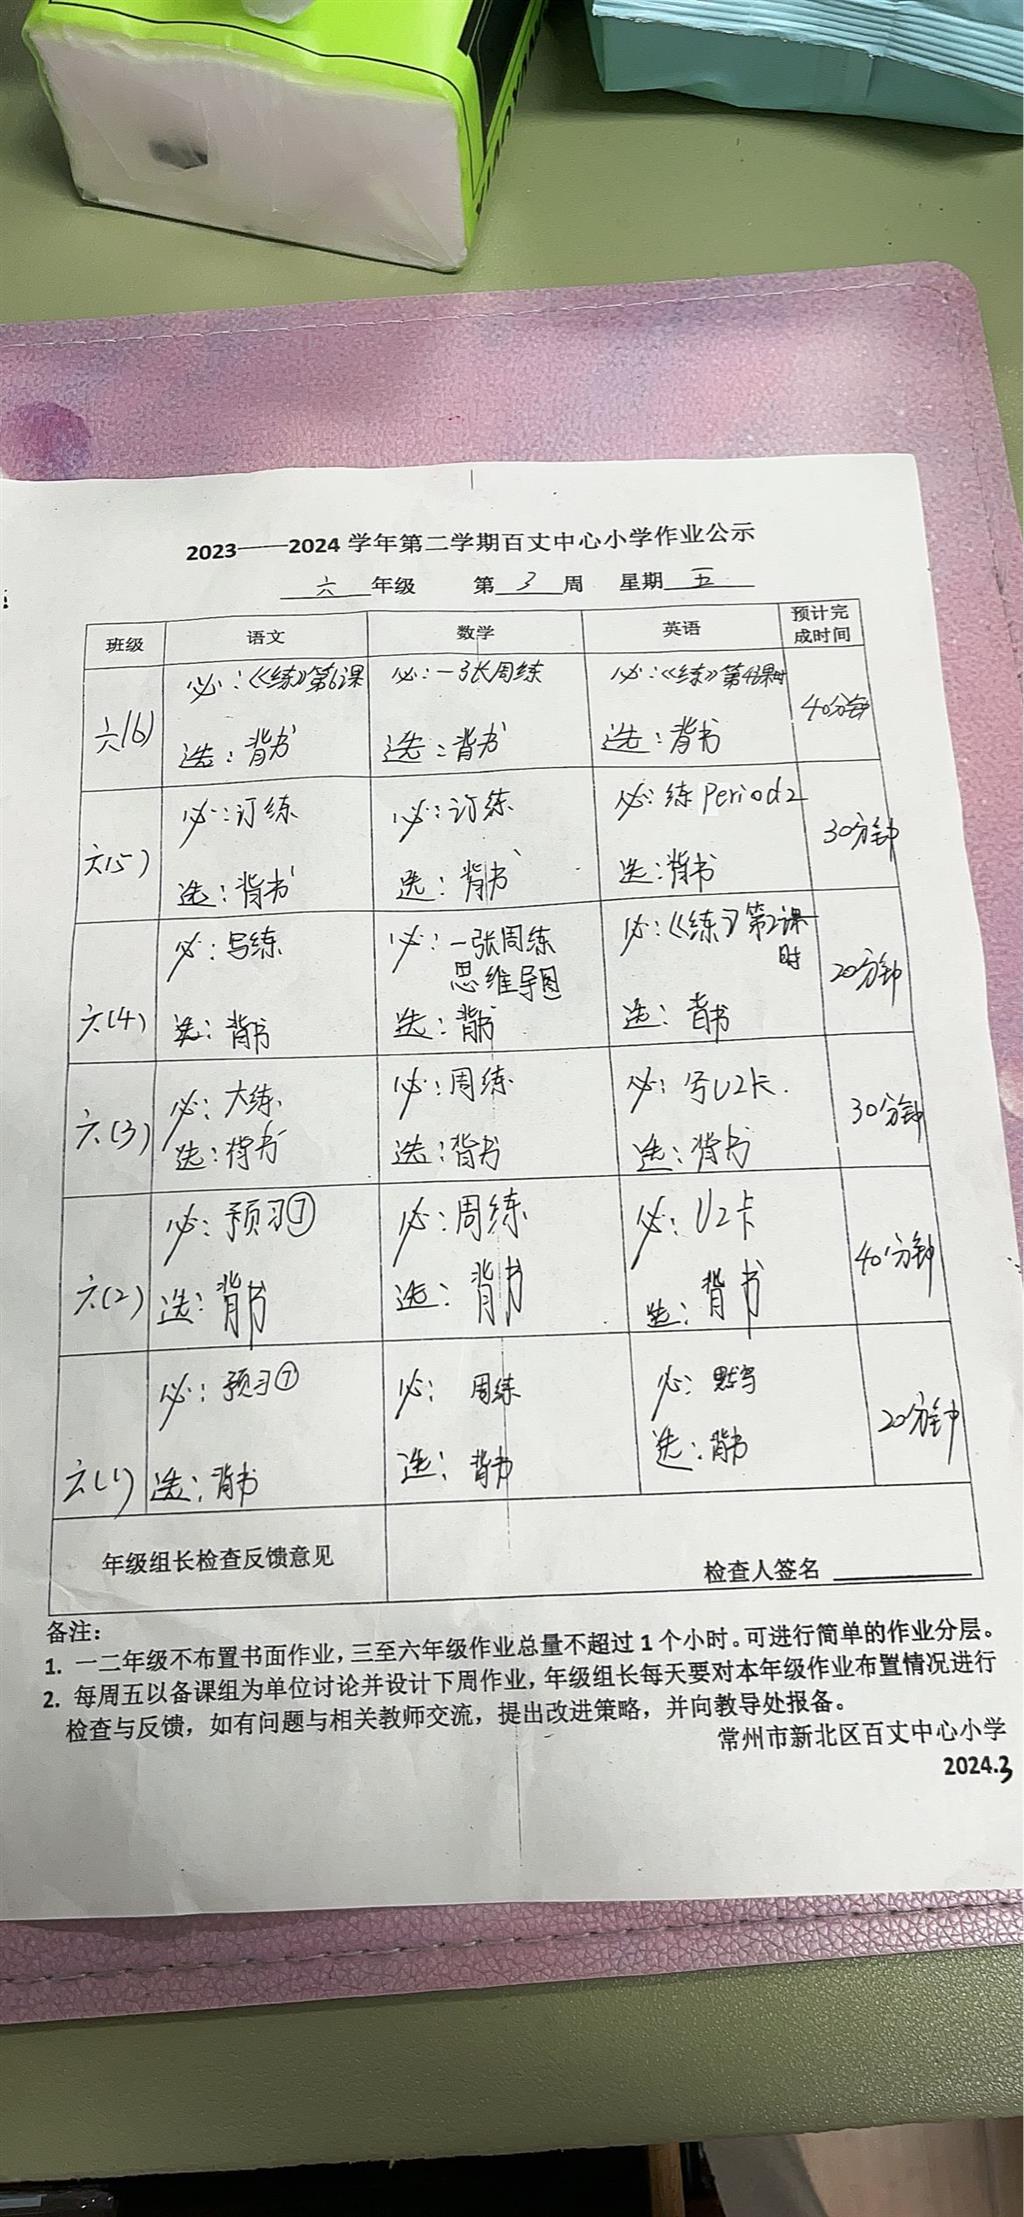 2023——2024 学年第二学期百丈中心小学作业公示
六 年级 第 3 周 星期 五
班级 语文 数学 英语 预计完成时间
六(6)
必：《练》第6课
选：背书
必：一张周练
选：背书
必：《练》第4课时
选：背书
40分钟
六(5)
必：订练
选：背书
必：订练
选：背书
必：练 Period2
选：背书
30分钟
六(4)
必：写练
选：背书
必：一张周练
思维导图
选：背书
必：《练》第2课
时
选：背书
20分钟
六(3)
必：大练
选：背书
必：周练
选：背书
必：写U2卡.
选：背书
30分钟
六(2)
必：预习⑦
选：背书
必：周练
选：背书
必：U2卡
选：背书
40分钟
六(1)
必：预习⑦
选：背书
必：周练
选：背书
必：默写
选：背书
20分钟
年级组长检查反馈意见
检查人签名
备注：
1. 一二年级不布置书面作业，三至六年级作业总量不超过 1 个小时。可进行简单的作业分层。
2. 每周五以备课组为单位讨论并设计下周作业，年级组长每天要对本年级作业布置情况进行
检查与反馈，如有问题与相关教师交流，提出改进策略，并向教导处报备。
常州市新北区百丈中心小学
2024.3